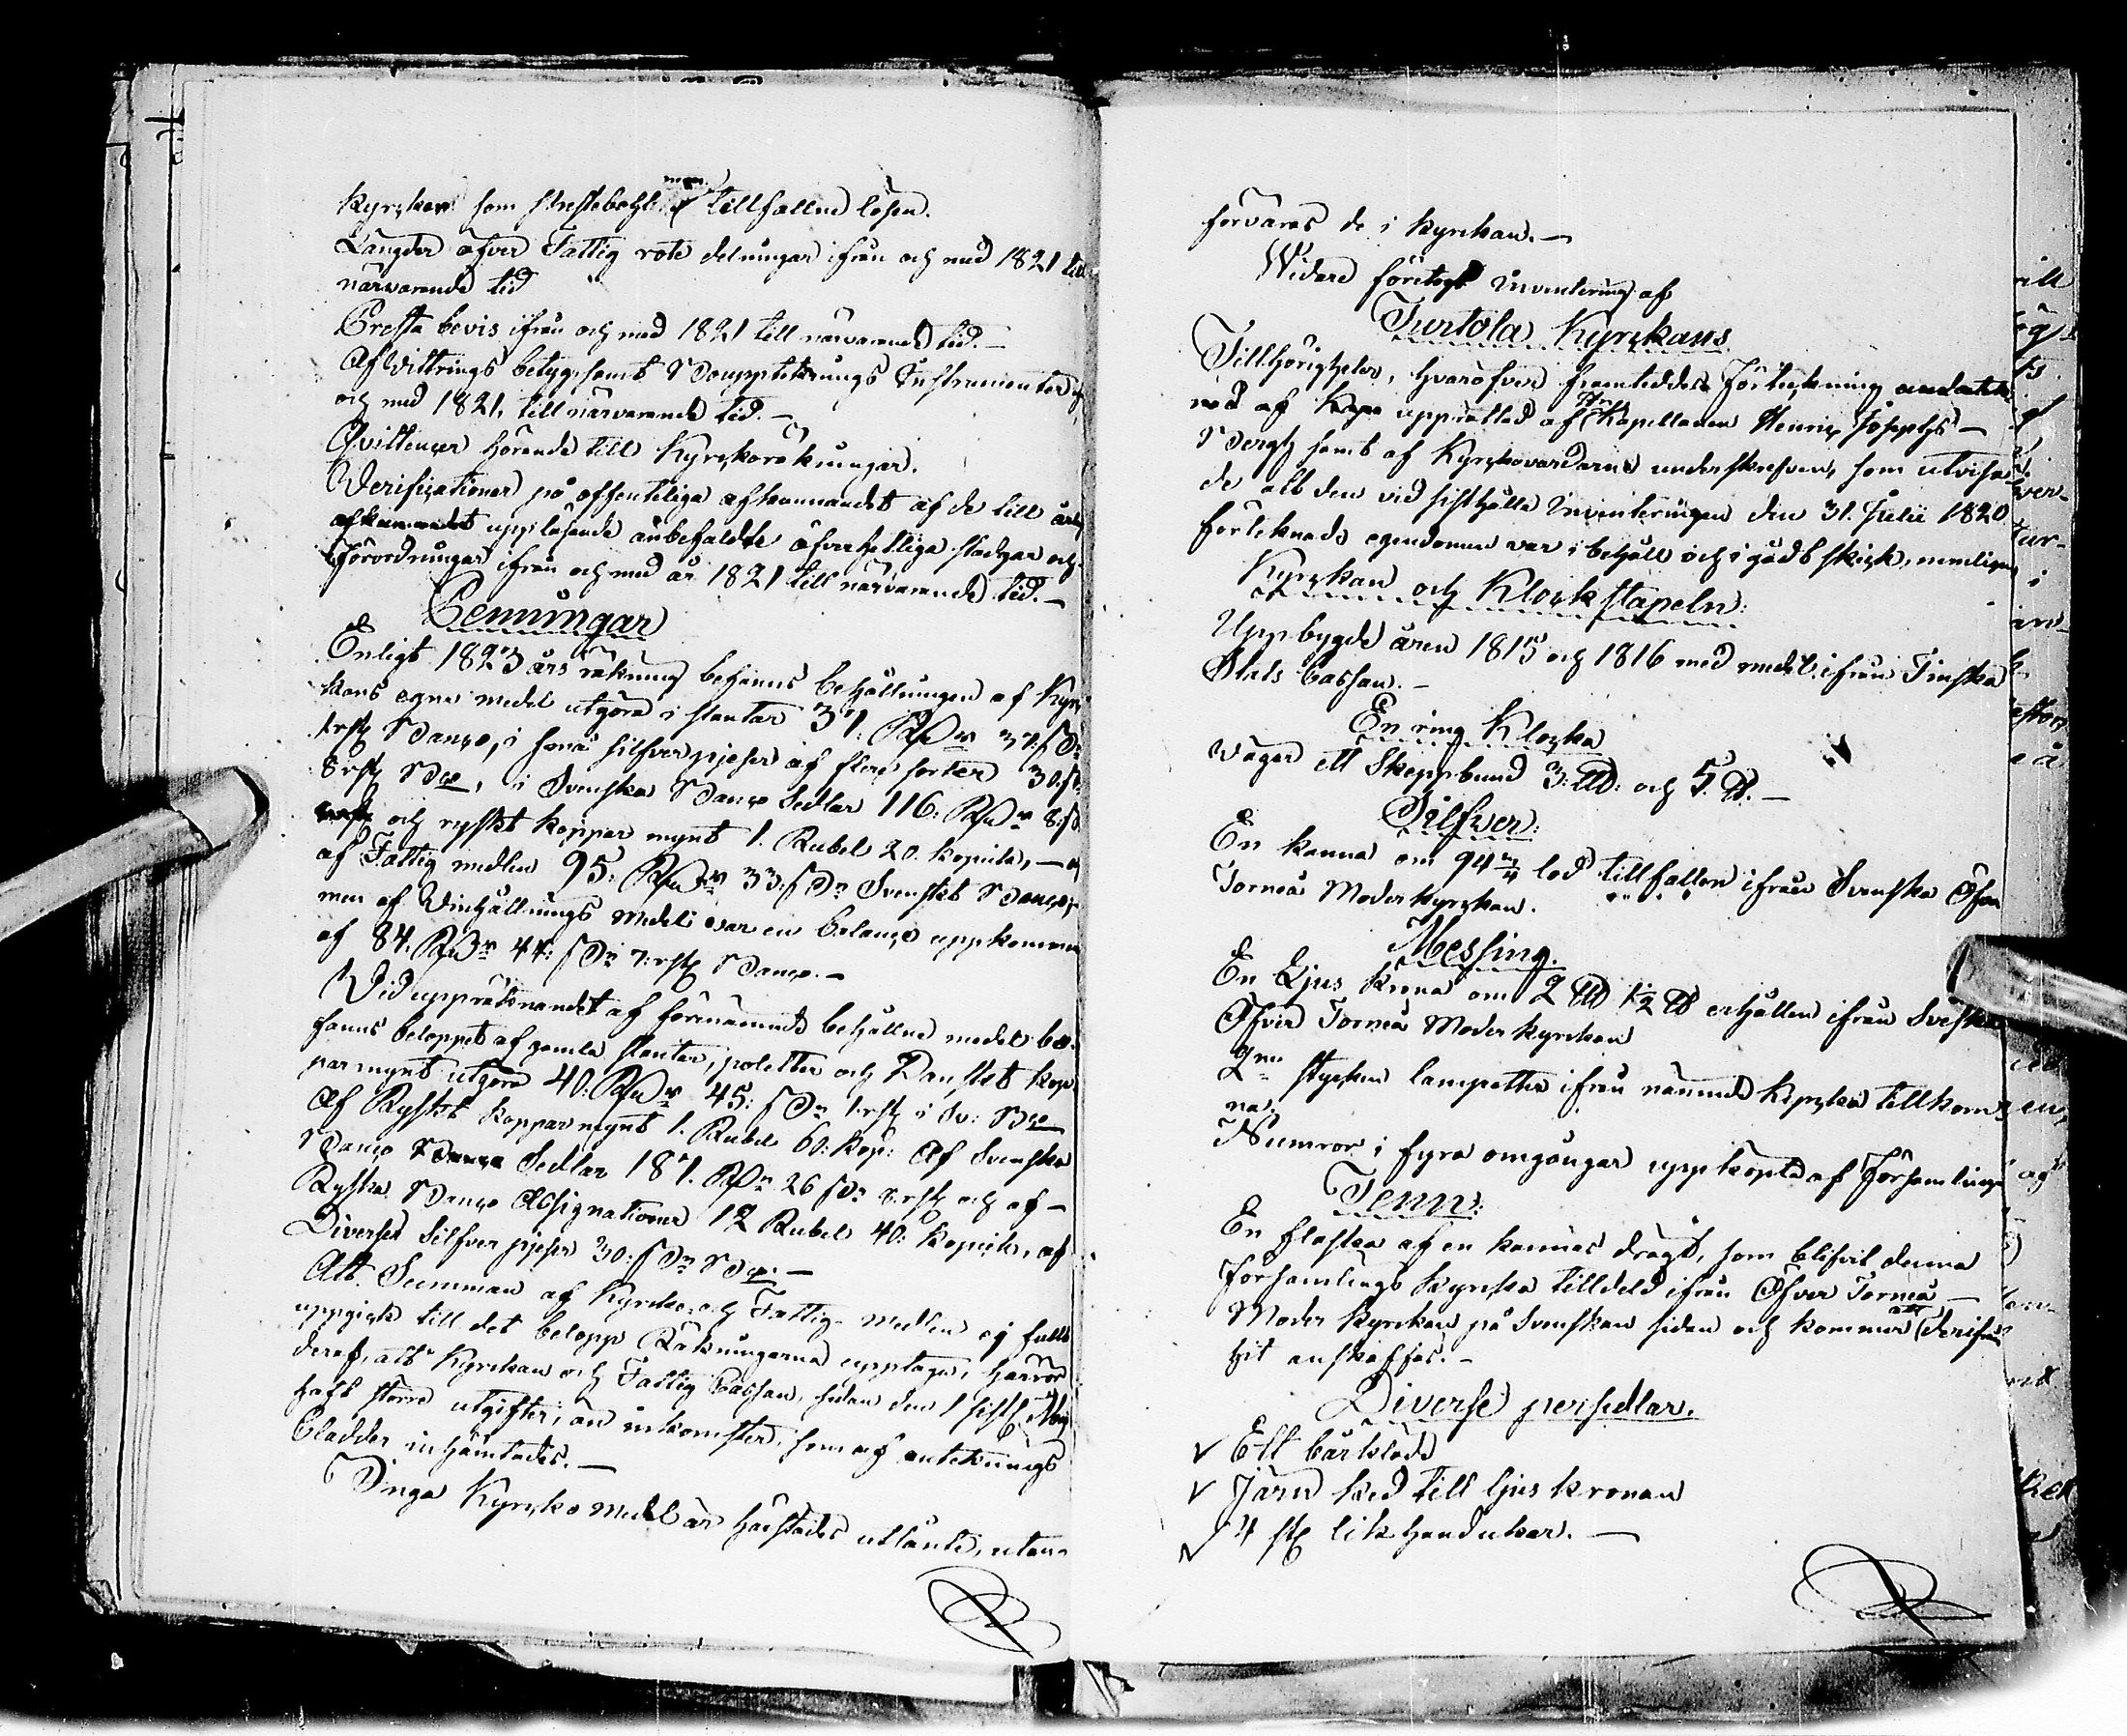 Kyrckan som tillfallne lösen.
Längder öfver Fattig rote delningar ifrån och med 1821 till
närvarande tid
Presta bevis ifrån och med 1821 till närvarande tid.—
Af Vittrings betyg, samt Instrumenter
och med 1821, till närvarande tid.—
Qvittencer hörande till Kyrckoräkningar.
Verifikationer på offenteliga afkunnandet af de till
uppläsande anbefaldte öfverhetliga stadgar och
Förordningar ifrån och med år 1821 till närvarande tid.—
Penningar
Enligt 1823 års räkning befanns behållningen af Kyr-
kans egna medel utgöra i slantar 37: 37:
Banco, i små silfverpjeser af flere sorter 30:
8 , i Svenska Banco Sedlar 116: 8:
och ryskt koppar mynt 1. Rubel 20. kopeck,—
af Fattig medlen 95: 33: Svenskt Banco,
men af Vinhållnings medel var en balance uppkommen
af 84. 44: 7: Banco.—
Vid uppräknandet af förenämnde behållne medel be-
fanns beloppet af gamla slantar, poletter och Danskt kop-
par mynt utgöra 40: 45: i
Af Ryskt koppar mynt 1. Rubel 60: kop: Af Svenska
Banco Sedlar 187. 26 och af—
Ryska Banco Assignationer 12 Rubel 40: kopeck, af
Diverse Silfver pjeser 30:
Att Summan af Kyrcko och Fattig-medlen ej fullt
uppgick till det belopp Räkningarne upptager, härrör
deraf, att Kyrckan och Fattig Cassan, sedan den 1 sistl Maij
haft större utgifter, än inkomster, som af anteknings
bladder inhämtades.—
Inga Kyrcko medel är härstädes utlånte, utan
förvaras de i kyrckan.—
Widare företogs Inventering af
Turtola Kyrckans
Tillhörigheter, hvaröfver framteddes Förteckning
af upprättad af Hr Kapellanen Henric Josephs—
Bergh samt af Kyrckovardarne underskrefven, som utvisa-
de att den vid sisthållne Inventeringen den 31. Julii 1820
förteknade egendomen var i behåll och i godt skick, nemligen
Kyrckan och Klockstapeln:
Uppbygde åren 1815 och 1816 med medel ifrån Finska
Stats Cassan.—
En ring Klocka
wäger ett Skeppund 3: och 5.
Silfver:
En kanna om 94 3/4 lod tillfallen ifrån Svenska Öfver
Torneå Moderkyrckan.
Messing.
En Ljus Krona om 2 1½ erhållen ifrån Svenska
Öfver Torneå Moderkyrckan
2ne stycken lampetter ifrån nämnde Kyrcka tillkom-
na.
Numror i fyra omgångar uppköpte af Församlingen
Tenn:
En flaska af en kannas drägt, som blifvit denna
Församlings Kyrcka tilldeld ifrån Öfver Torneå—
Moder Kyrckan på Svenskan sidan och kommer att derifrån
hit anskaffas.—
Diverse persedlar.
✓ Ett bårkläde
✓ Järn ked till ljus kronan
✓ 4 st lik handukar.—